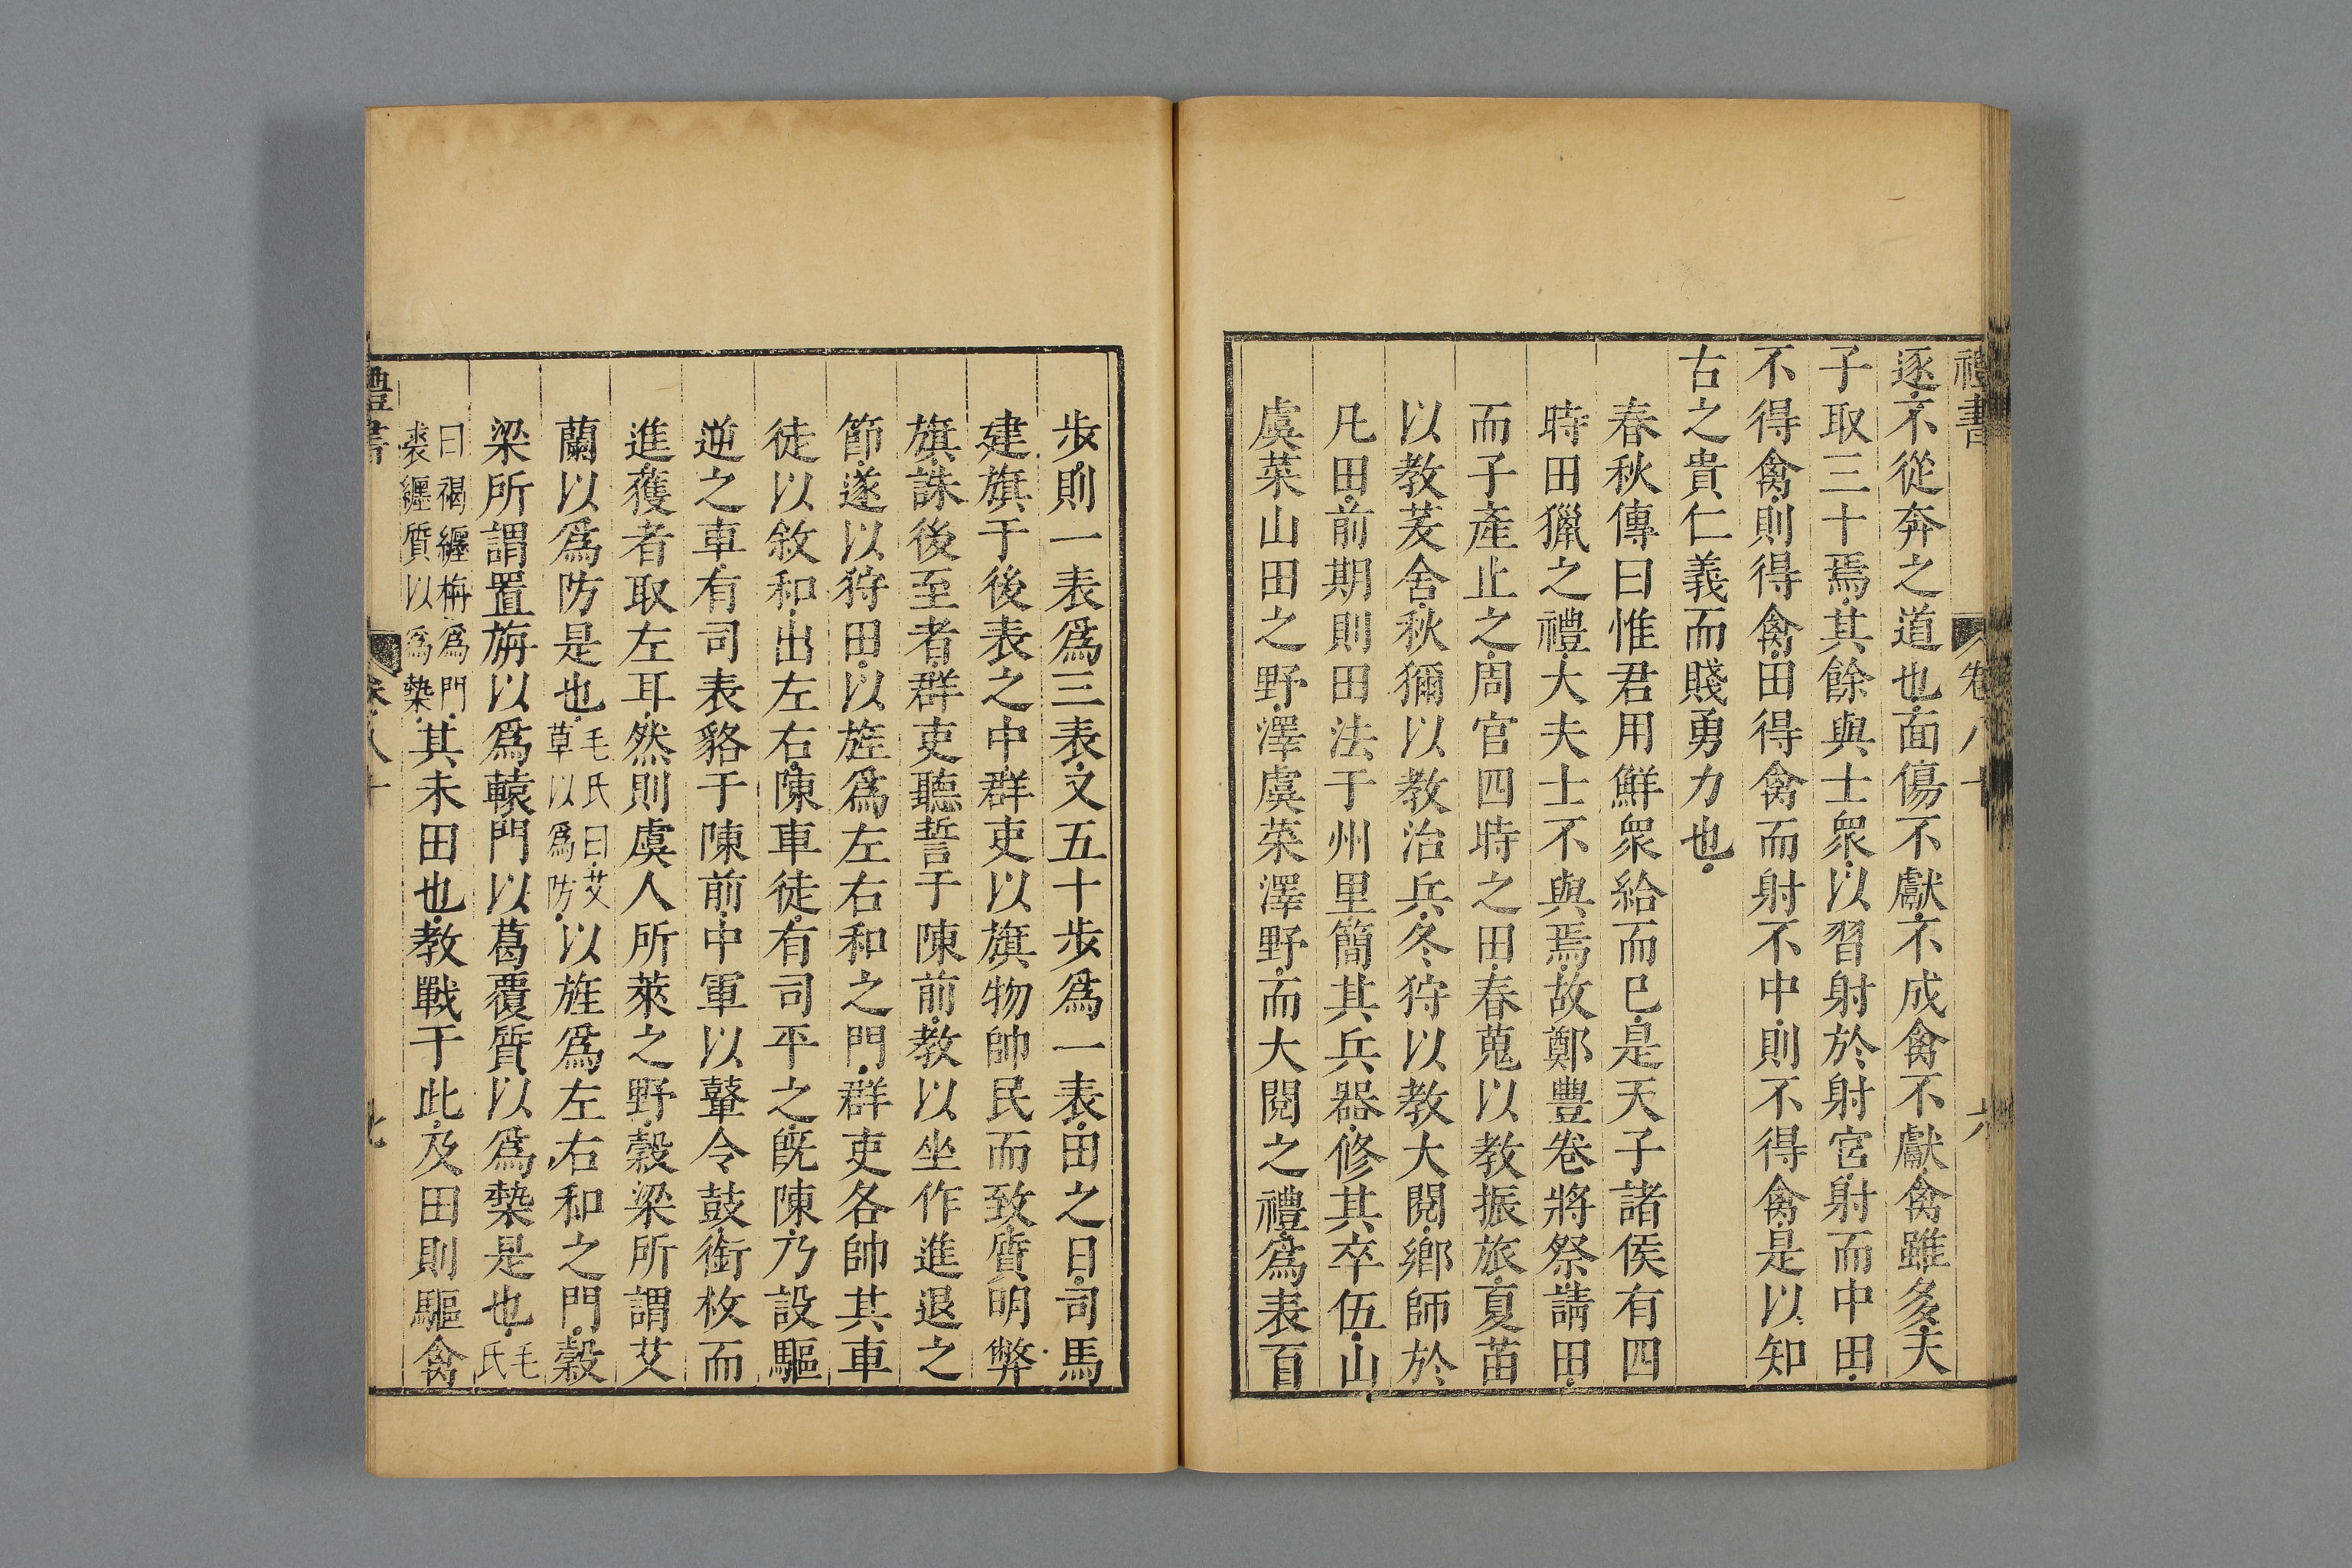 禮書 卷八十 六
逐不從奔之道也面傷不獻不成禽不獻禽雖多天
子取三十焉其餘與士衆以習射於射宮射而中田
不得禽則得禽田得禽而射不中則不得禽是以知
古之貴仁義而賤勇力也
春秋傳曰惟君用鮮衆給而已是天子諸侯有四
時田獵之禮大夫士不與焉故鄭豐卷將祭請田
而子產止之周官四時之田春蒐以教振旅夏苗
以教茇舍秋獮以教治兵冬狩以教大閱鄉師於
凡田前期則田法于州里簡其兵器修其卒伍山
虞萊山田之野澤虞萊澤野而大閱之禮爲表百
步則一表爲三表又五十步爲一表田之日司馬
建旗于後表之中群吏以旗物帥民而致質明弊
旗誅後至者群吏聽誓于陳前教以坐作進退之
節遂以狩田以旌爲左右和之門群吏各帥其車
徒以敘和出左右陳車徒有司平之既陳乃設驅
逆之車有司表貉于陳前中軍以鼙令鼓銜枚而
進獲者取左耳然則虞人所萊之野穀梁所謂艾
蘭以爲防是也毛氏曰艾草以爲防以旌爲左右和之門穀
梁所謂置旃以爲轅門以葛覆質以爲槷是也毛氏
曰褐纏旃爲門裘纏質以爲槷其未田也教戰于此及田則驅禽
禮書 卷八十